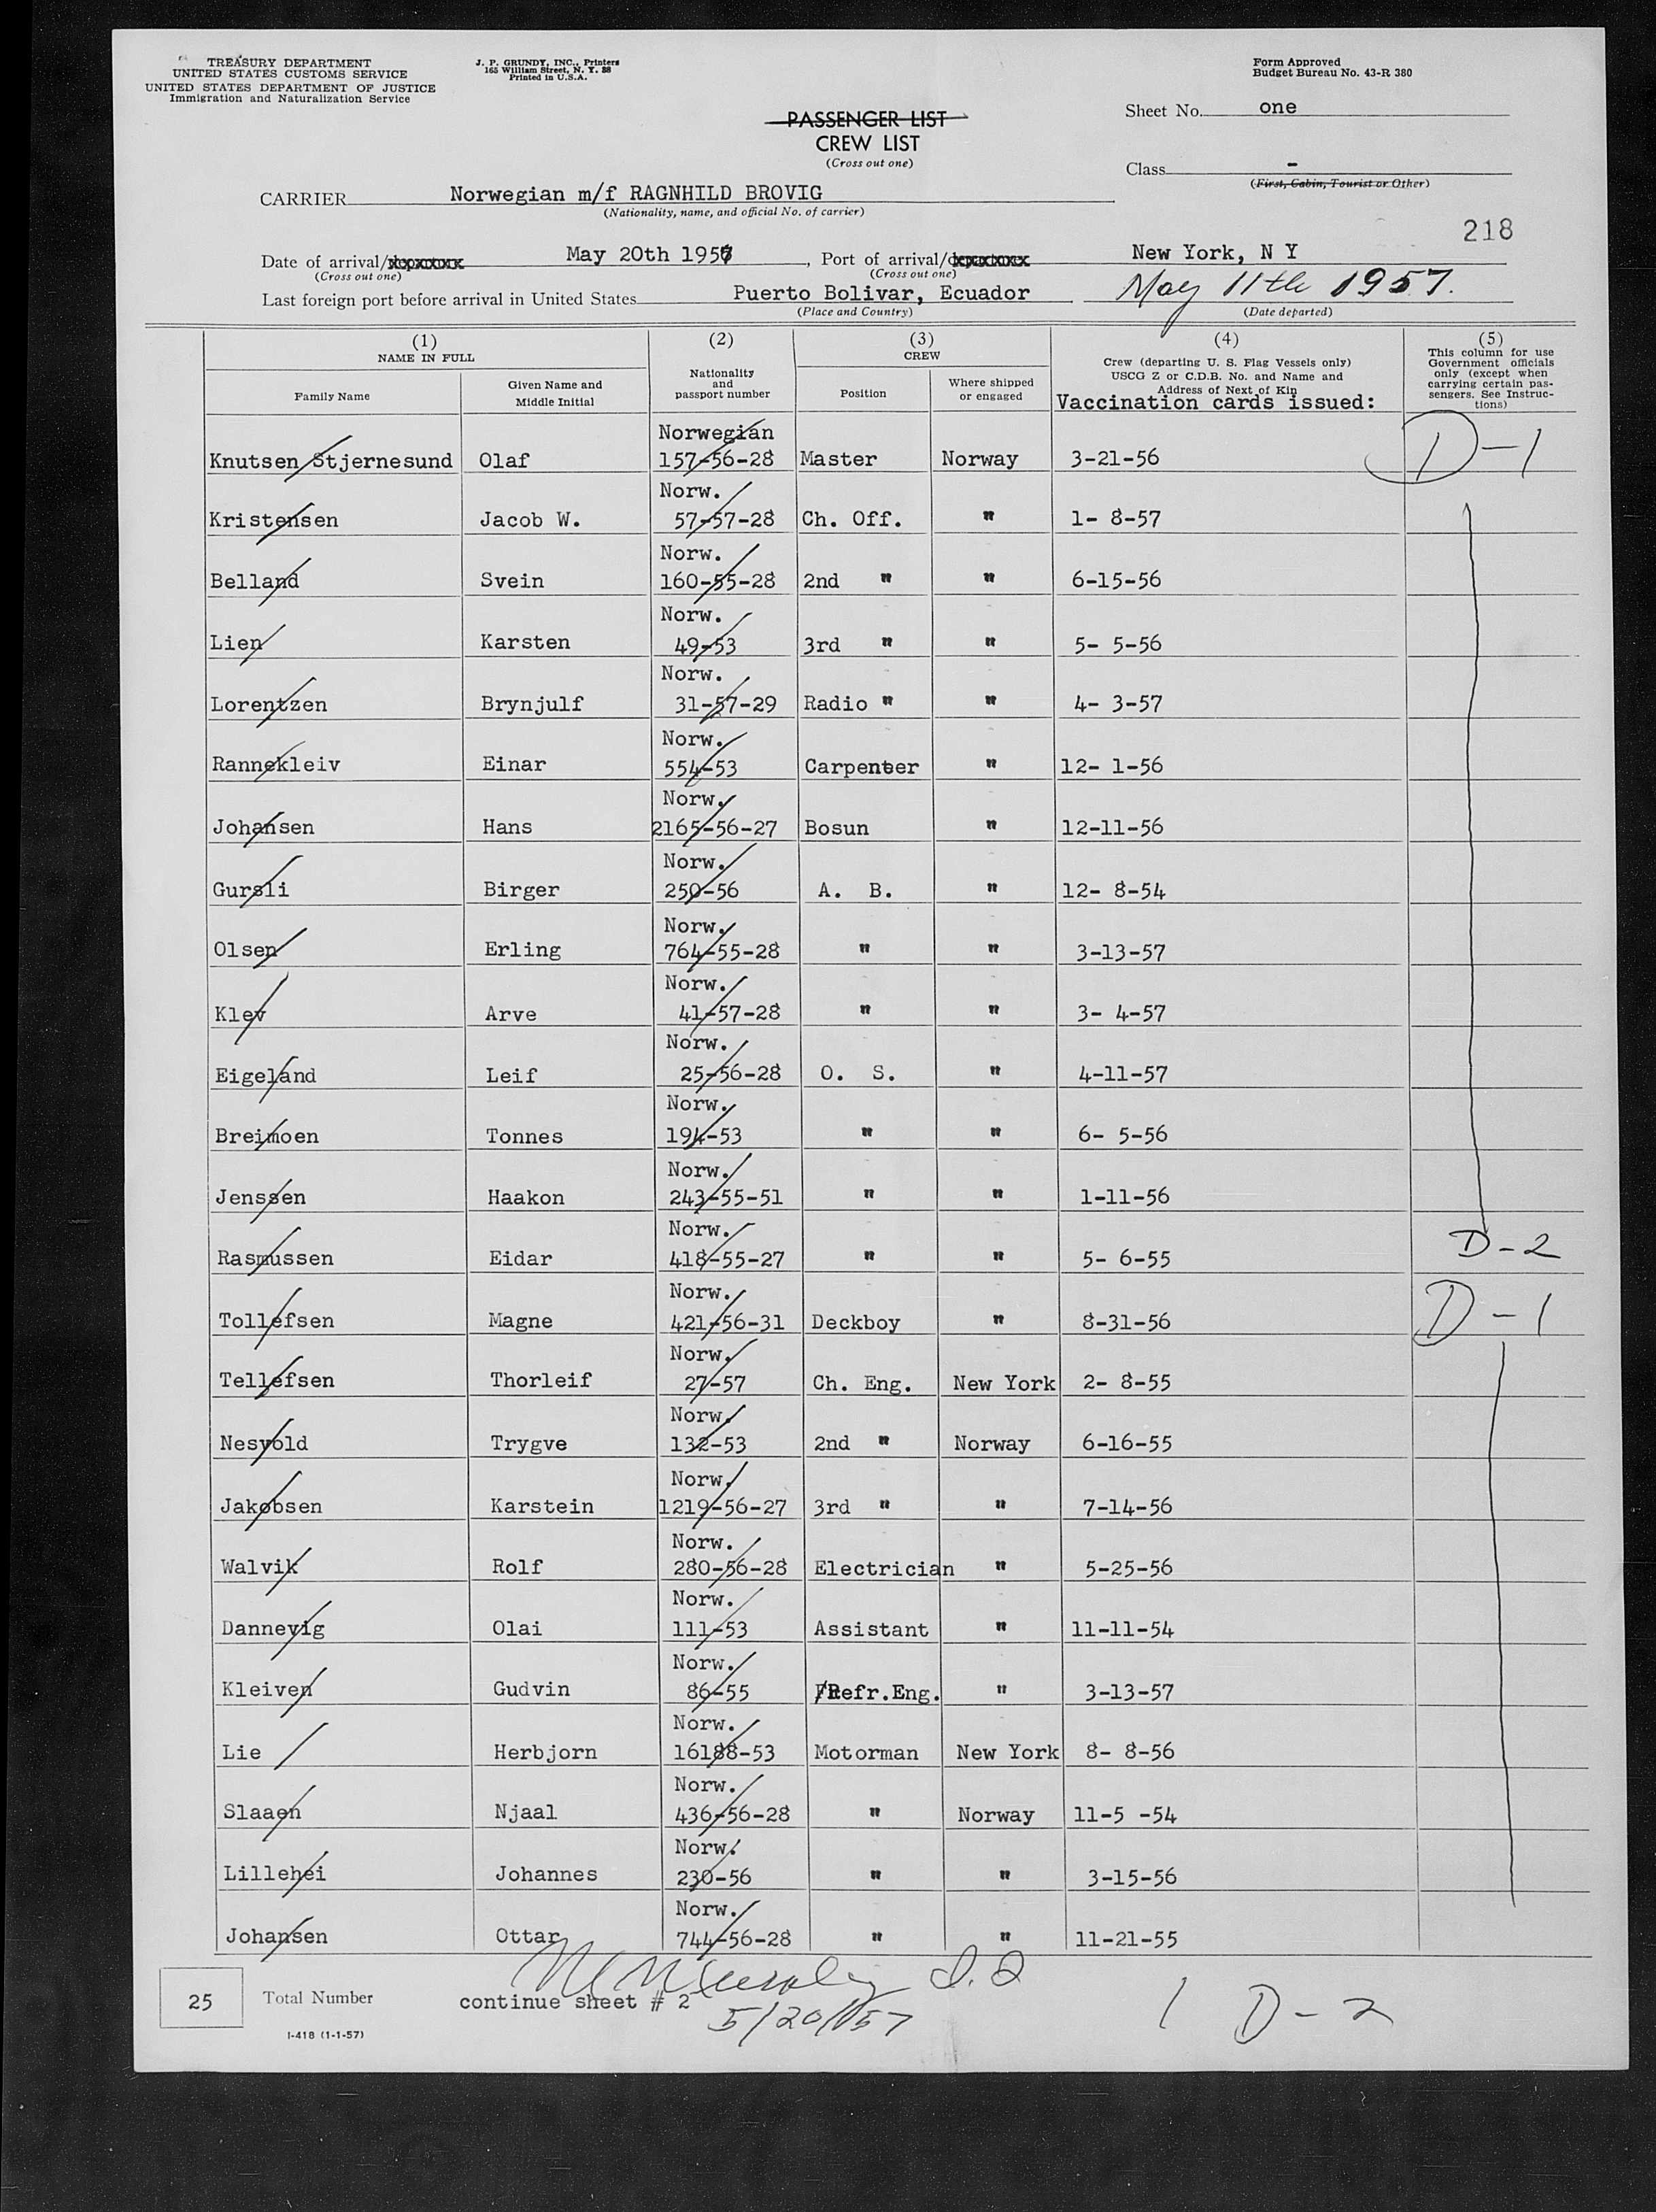 TREASURY DEPARTMENT
UNITED STATES CUSTOMS SERVICE
UNITED STATES DEPARTMENT OF JUSTICE
Immigration and Naturalization Service
J. P. GRUNDY, INC., Printers
165 William Street, N. Y. 38
Printed in U.S.A.
Form Approved
Budget Bureau No. 43-R 380
Sheet No. one
PASSENGER LIST
CREW LIST
(Cross out one)
Class -
(First, Cabin, Tourist or Other)
CARRIER Norwegian m/f RAGNHILD BROVIG
(Nationality, name, and official No. of carrier)
218
Date of arrival/ May 20th 1957, Port of arrival/ New York, N Y
(Cross out one) (Cross out one)
Last foreign port before arrival in United States Puerto Bolivar, Ecuador May 11th 1957.
(Place and Country) (Date departed)
(1) (2) (3) (4) (5)
NAME IN FULL
Family Name
Given Name and
Middle Initial
Nationality
and
passport number
CREW
Position
Where shipped
or engaged
Crew (departing U. S. Flag Vessels only)
USCG Z or C.D.B. No. and Name and
Address of Next of Kin
Vaccination cards issued:
This column for use
Government officials
only (except when
carrying certain pas-
sengers. See Instruc-
tions)
Norwegian
Knutsen Stjernesund Olaf 157-56-28 Master Norway 3-21-56 D-1
Norw.
Kristensen Jacob W. 57-57-28 Ch. Off. " 1- 8-57
Norw.
Belland Svein 160-55-28 2nd " " 6-15-56
Norw.
Lien Karsten 49-53 3rd " " 5- 5-56
Norw.
Lorentzen Brynjulf 31-57-29 Radio " " 4- 3-57
Norw.
Rannekleiv Einar 554-53 Carpenter " 12- 1-56
Norw.
Johansen Hans 2165-56-27 Bosun " 12-11-56
Norw.
Gursli Birger 250-56 A. B. " 12- 8-54
Norw.
Olsen Erling 764-55-28 " " 3-13-57
Norw.
Klev Arve 41-57-28 " " 3- 4-57
Norw.
Eigeland Leif 25-56-28 O. S. " 4-11-57
Norw.
Breimoen Tonnes 194-53 " " 6- 5-56
Norw.
Jenssen Haakon 243-55-51 " " 1-11-56
Norw.
Rasmussen Eidar 418-55-27 " " 5- 6-55 D-2
Norw.
Tollefsen Magne 421-56-31 Deckboy " 8-31-56 D-1
Norw.
Tellefsen Thorleif 27-57 Ch. Eng. New York 2- 8-55
Norw.
Nesvold Trygve 132-53 2nd " Norway 6-16-55
Norw.
Jakobsen Karstein 1219-56-27 3rd " " 7-14-56
Norw.
Walvik Rolf 280-56-28 Electrician " 5-25-56
Norw.
Dannevig Olai 111-53 Assistant " 11-11-54
Norw.
Kleiven Gudvin 86-55 Refr.Eng. " 3-13-57
Norw.
Lie Herbjorn 16188-53 Motorman New York 8- 8-56
Norw.
Slaaen Njaal 436-56-28 " Norway 11-5 -54
Norw.
Lillehei Johannes 230-56 " " 3-15-56
Norw.
Johansen Ottar 744-56-28 " " 11-21-55
25 Total Number continue sheet # 2
5/20/57
1 D-2
I-418 (1-1-57)